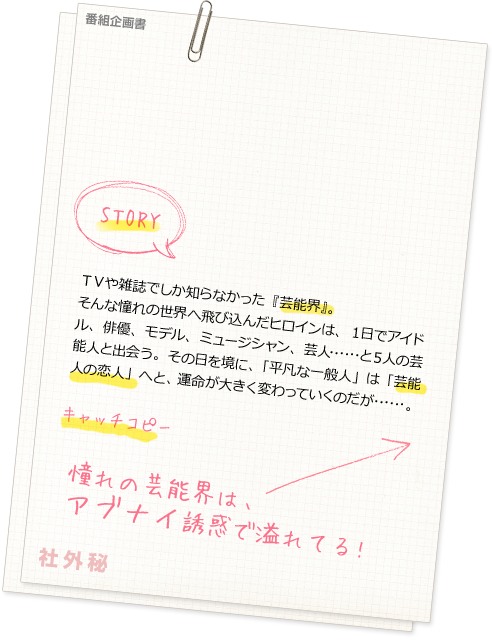 番組企画書
STORY
TVや雑誌でしか知らなかった『芸能界』。
そんな憧れの世界へ飛び込んだヒロインは、1日でアイド
ル、俳優、モデル、ミュージシャン、芸人……と5人の芸
能人と出会う。その日を境に、「平凡な一般人」は「芸能
人の恋人」へと、運命が大きく変わっていくのだが……。
キャッチコピー
憧れの芸能界は、
アブナイ誘惑で溢れてる!
社外秘